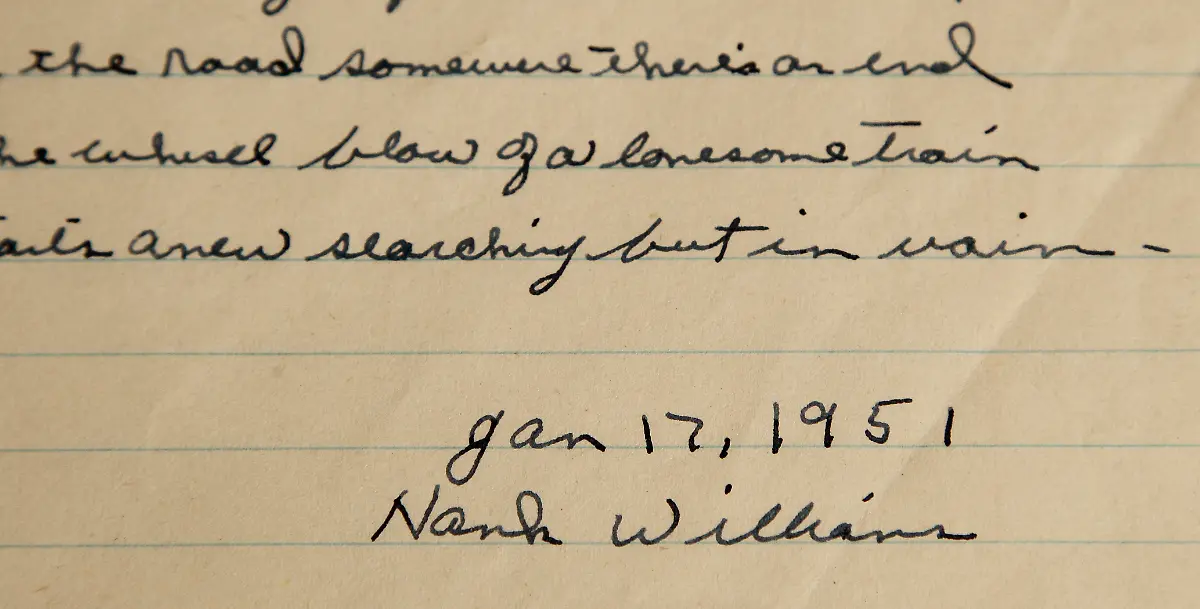 the road somewere there's an end
he whusel blow of a lonesome train
arts anew searching but in vain -
Jan 17, 1951
Hank Williams